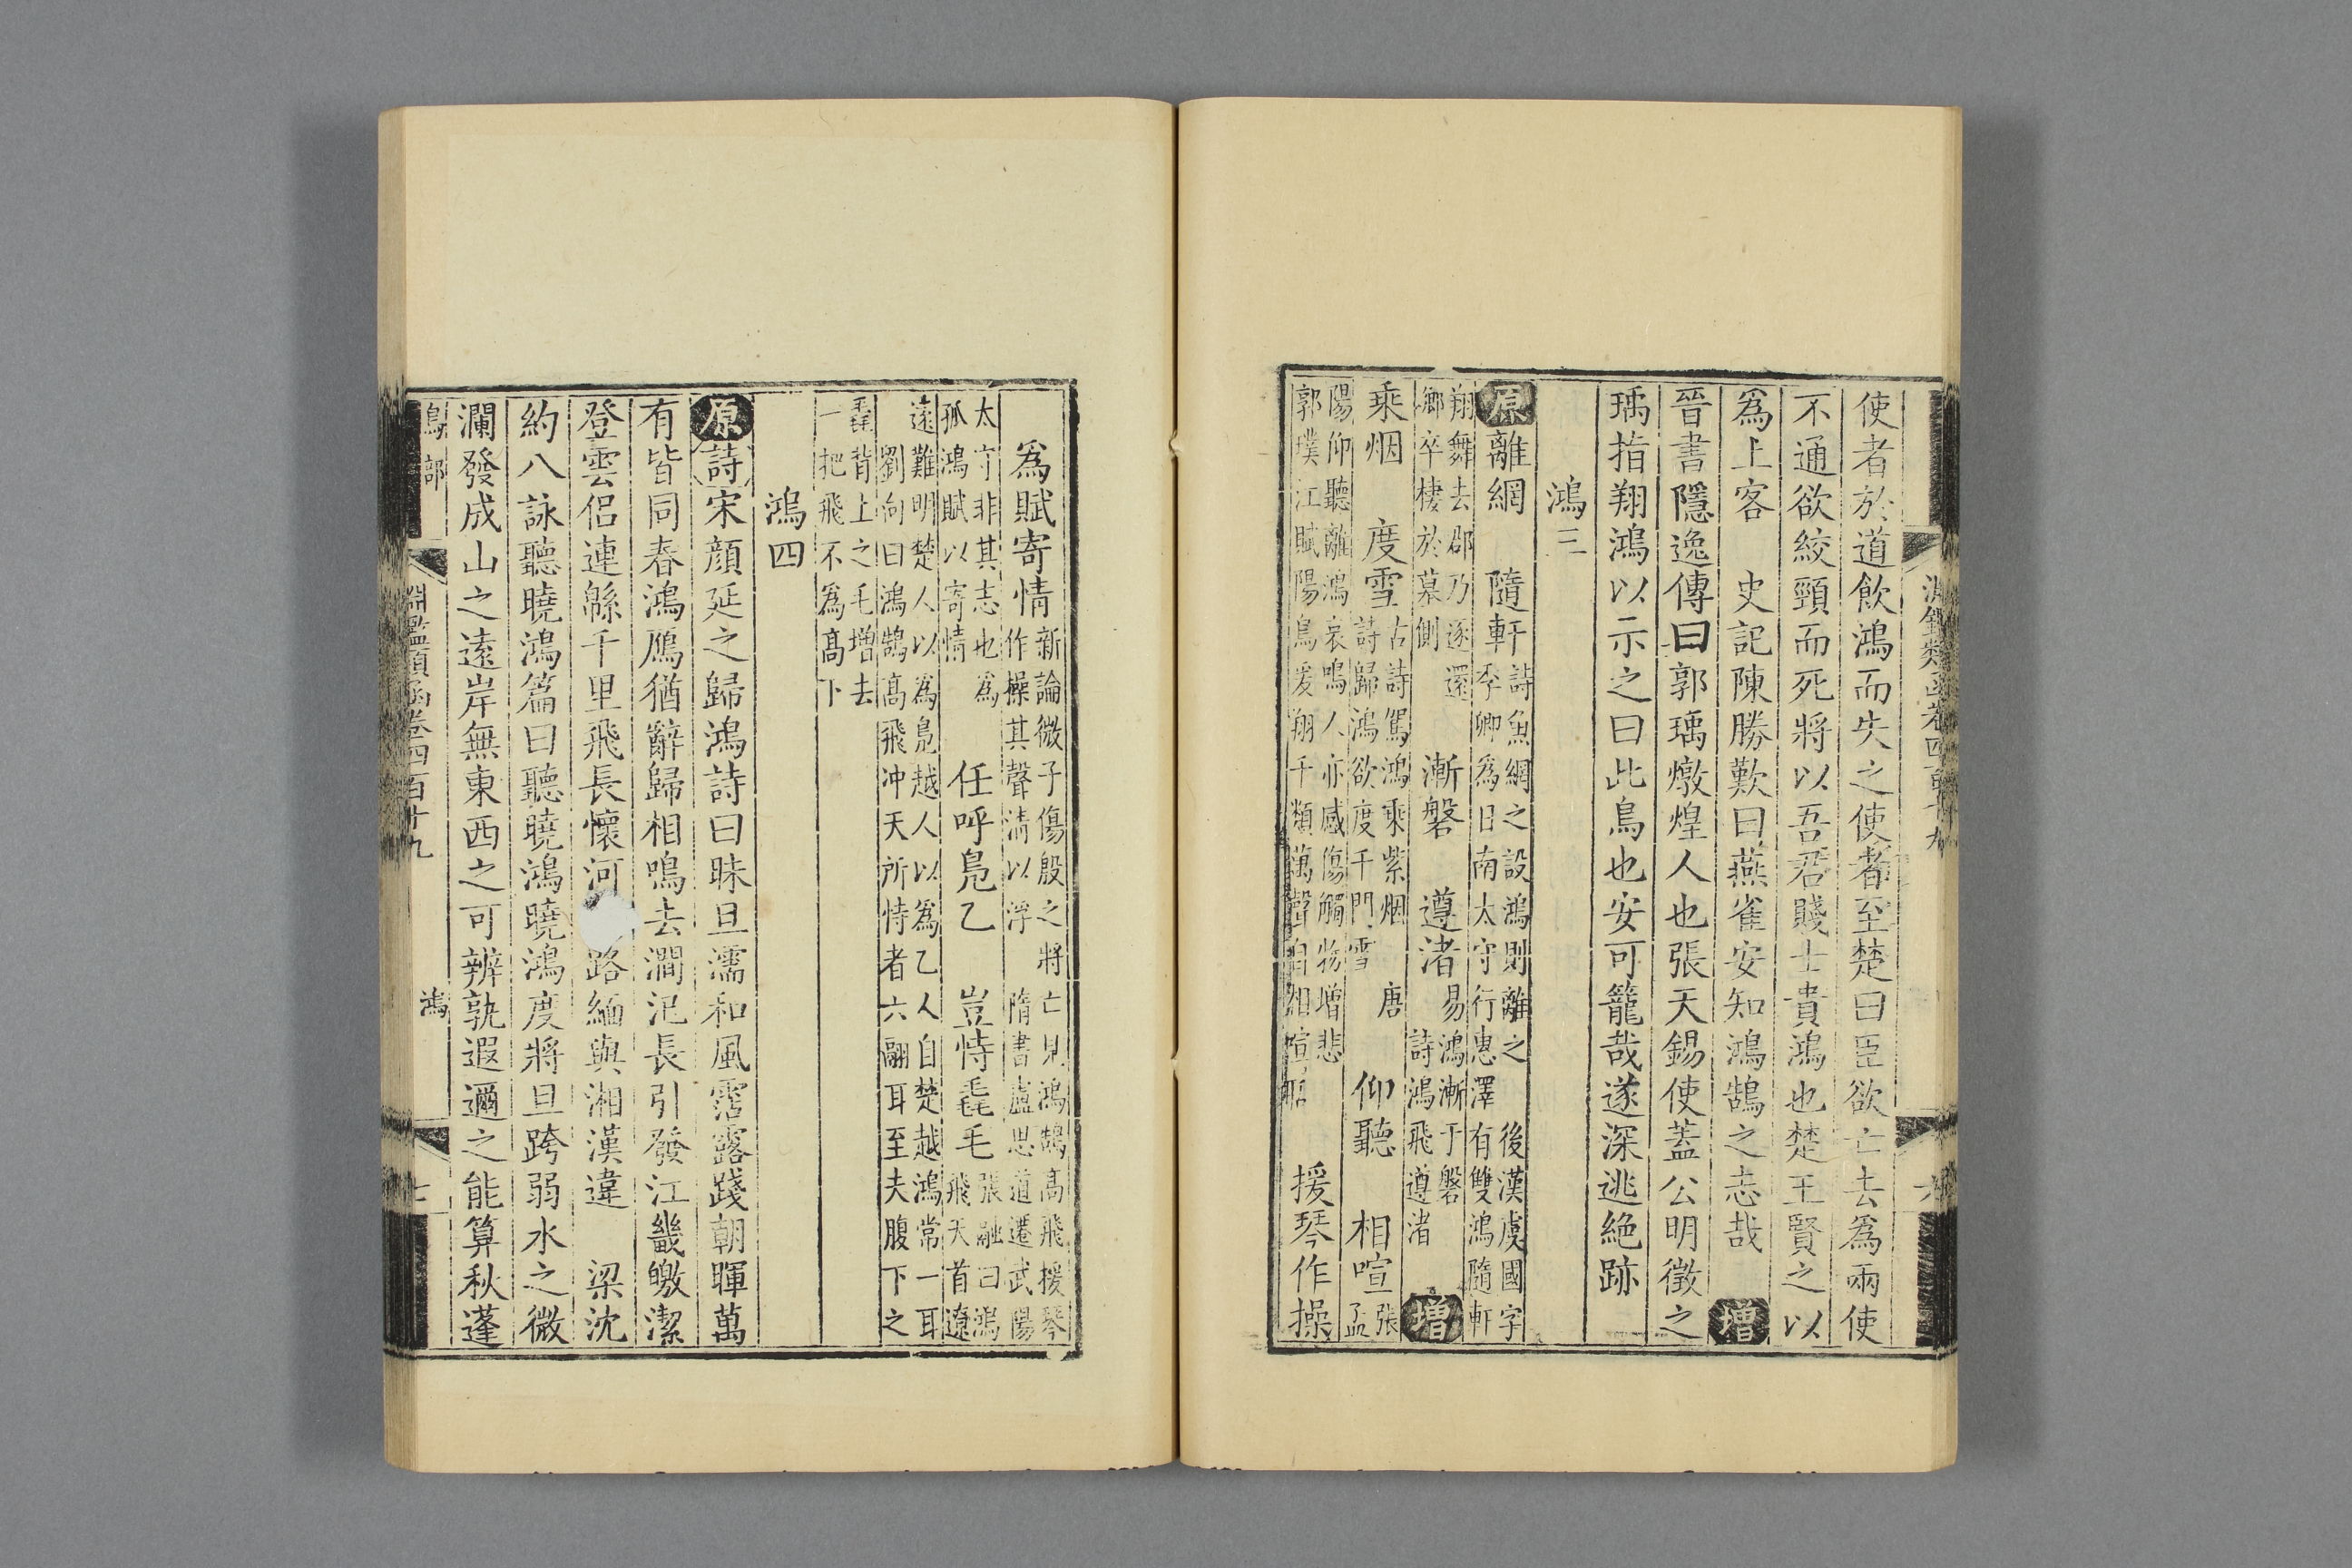 使者於道飲鴻而失之使者至楚曰臣欲亡去爲兩使
不通欲絞頸而死將以吾君賤士貴鴻也楚王賢之以
爲上客 史記陳勝歎曰燕雀安知鴻鵠之志哉 增
晉書隱逸傳曰郭瑀燉煌人也張天錫使蓋公明徵之
瑀指翔鴻以示之曰此鳥也安可籠哉遂深逃絕跡
鴻三
原離網 隨軒 詩魚網之設鴻則離之 後漢虞國字
季卿爲日南太守行惠澤 有雙鴻隨軒
翔舞去郡乃逐還
鄉卒棲於墓側 漸磐 遵渚 易鴻漸于磐
詩鴻飛遵渚 增
乘烟 度雪 古詩駕鴻乘紫烟 唐
詩歸鴻欲度千門雪 仰聽 相喧 張
孟
陽仰聽離鴻哀鳴人亦感傷觸物增悲
郭璞江賦陽鳥爰翔千類萬聲自相喧聒 援琴作操
爲賦寄情 新論微子傷殷之將亡見鴻鵠高飛援琴
作操其聲清以浮 隋書盧思道遷武陽
太守非其志也爲
孤鴻賦以寄情 任呼鳧乙 豈恃毳毛 張融曰鴻
飛天首遼
遠難明楚人以爲鳧越人以爲乙人自楚越鴻常一耳
劉向曰鴻鵠高飛冲天所恃者六翮耳至夫腹下之
毳背上之毛增去
一把飛不爲高下
鴻四
原詩宋顏延之歸鴻詩曰昧旦濡和風霑露踐朝暉萬
有皆同春鴻鴈猶辭歸相鳴去澗汜長引發江畿皦潔
登雲侶連緜千里飛長懷河路緬與湘漢違 梁沈
約八詠聽曉鴻篇曰聽曉鴻曉鴻度將旦跨弱水之微
瀾發成山之遠岸無東西之可辨孰遐邇之能算秋蓬
鳥部 鴻
淵鑑類函卷四百廿九
七